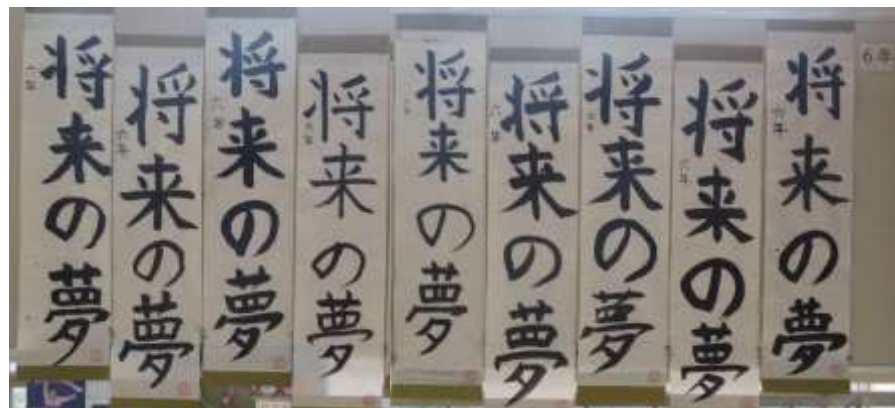 将来の夢
六年
将来の夢
六年
将来の夢
六年
将来の夢
六年
将来の夢
六年
将来の夢
六年
将来の夢
六年
将来の夢
六年
将来の夢
六年
6年